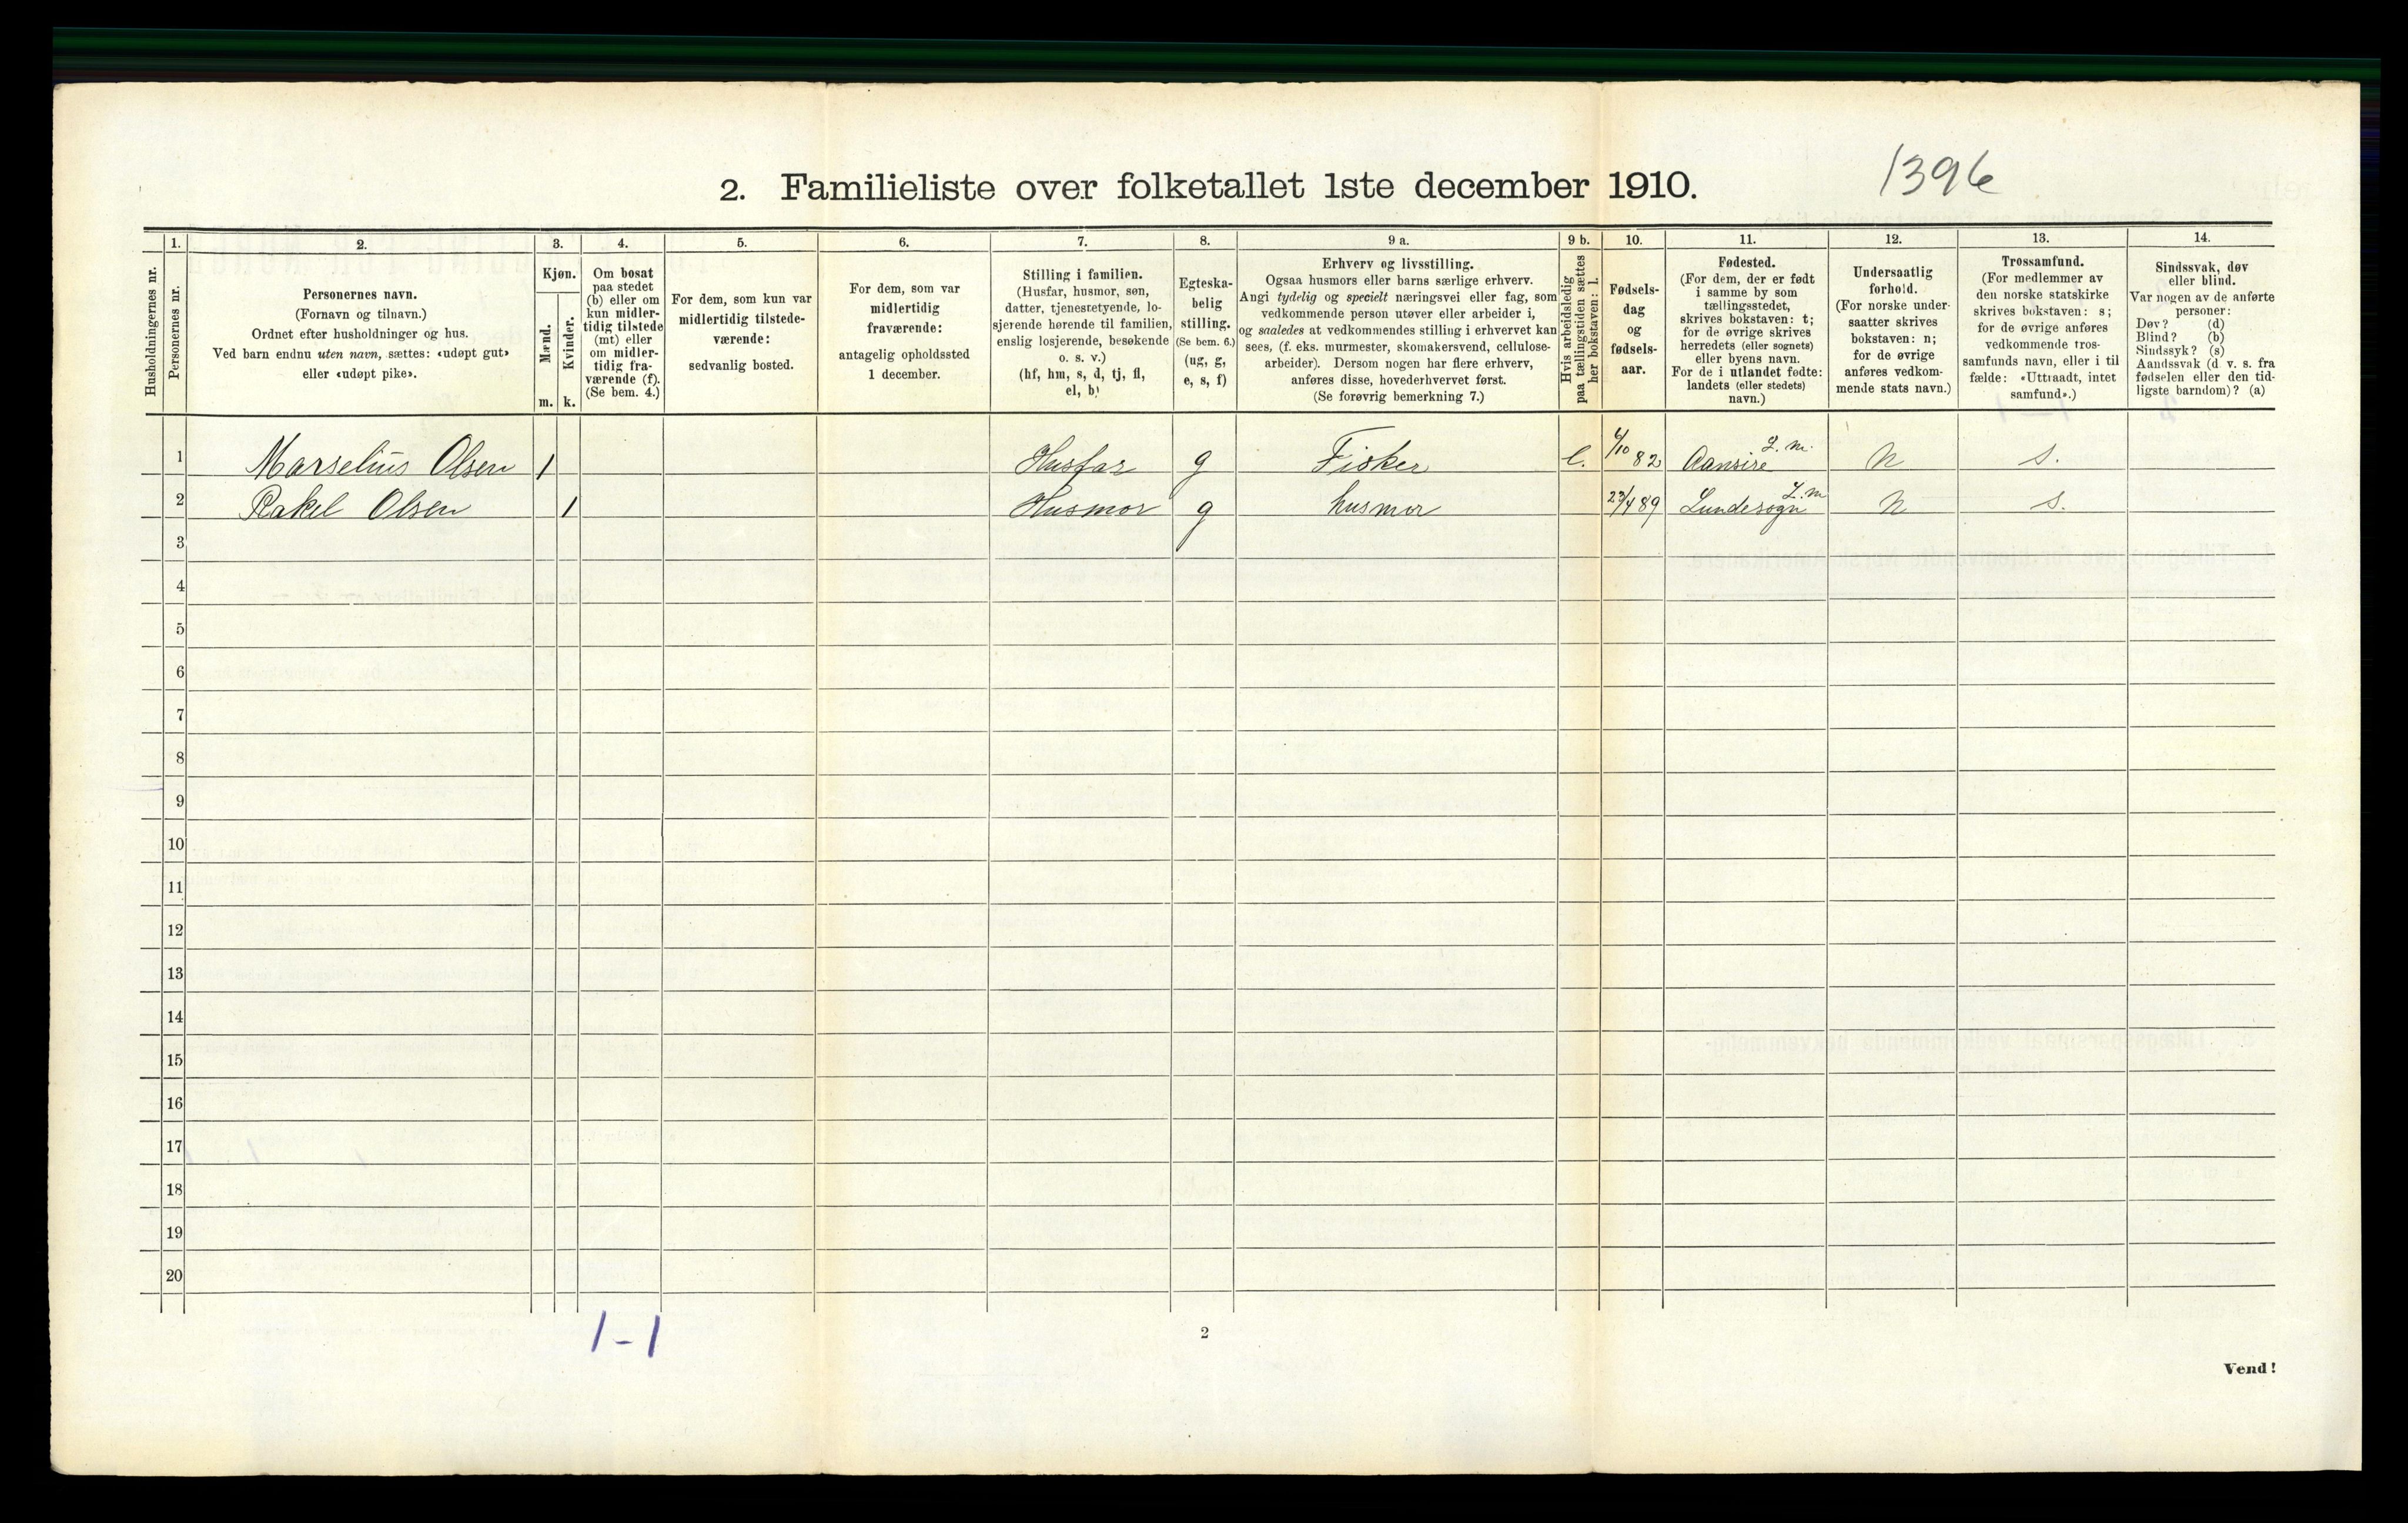 2. Familieliste over folketallet 1ste december 1910.
1396
Husholdningernes nr.
1.
Personernes nr.
2.
Personernes navn.
(Fornavn og tilnavn.)
Ordnet efter husholdninger og hus.
Ved barn endnu uten navn, sættes: «udøpt gut»
eller «udøpt pike».
3.
Kjøn.
Mænd.
Kvinder.
m. k.
4.
Om bosat
paa stedet
(b) eller om
kun midler-
tidig tilstede
(mt) eller
om midler-
tidig fra-
værende (f).
(Se bem. 4.)
5.
For dem, som kun var
midlertidig tilstede-
værende:
sedvanlig bosted.
6.
For dem, som var
midlertidig
fraværende:
antagelig opholdssted
1 december.
7.
Stilling i familien.
(Husfar, husmor, søn,
datter, tjenestetyende, lo-
sjerende hørende til familien,
enslig losjerende, besøkende
o. s. v.)
(hf, hm, s, d, tj, fl,
el, b)
8.
Egteska-
belig
stilling.
(Se bem. 6.)
(ug, g,
e, s, f)
9 a.
Erhverv og livsstilling.
Ogsaa husmors eller barns særlige erhverv.
Angi tydelig og specielt næringsvei eller fag, som
vedkommende person utøver eller arbeider i,
og saaledes at vedkommendes stilling i erhvervet kan
sees, (f. eks. murmester, skomakersvend, cellulose-
arbeider). Dersom nogen har flere erhverv,
anføres disse, hovederhvervet først.
(Se forøvrig bemerkning 7.)
9 b.
Hvis arbeidsledig
paa tællingstiden sættes
her bokstaven: l.
10.
Fødsels-
dag
og
fødsels-
aar.
11.
Fødested.
(For dem, der er født
i samme by som
tællingsstedet,
skrives bokstaven: t;
for de øvrige skrives
herredets (eller sognets)
eller byens navn.
For de i utlandet fødte:
landets (eller stedets)
navn.)
12.
Undersaatlig
forhold.
(For norske under-
saatter skrives
bokstaven: n;
for de øvrige
anføres vedkom-
mende stats navn.)
13.
Trossamfund.
(For medlemmer av
den norske statskirke
skrives bokstaven: s;
for de øvrige anføres
vedkommende tros-
samfunds navn, eller i til
fælde: «Uttraadt, intet
samfund».)
14.
Sindssvak, døv
eller blind.
Var nogen av de anførte
personer:
Døv? (d)
Blind? (b)
Sindssyk? (s)
Aandssvak (d. v. s. fra
fødselen eller den tid-
ligste barndom)? (a)
1 Marselius Olsen 1 Husfar g Fisker l. 6/10 82 Aansire L. m. n s.
2 Rakel Olsen 1 Husmor g husmor 23/4 89 Lundesogn L. m n s.
3
4
5
6
7
8
9
10
11
12
13
14
15
16
17
18
19
20
1-1
2
Vend!